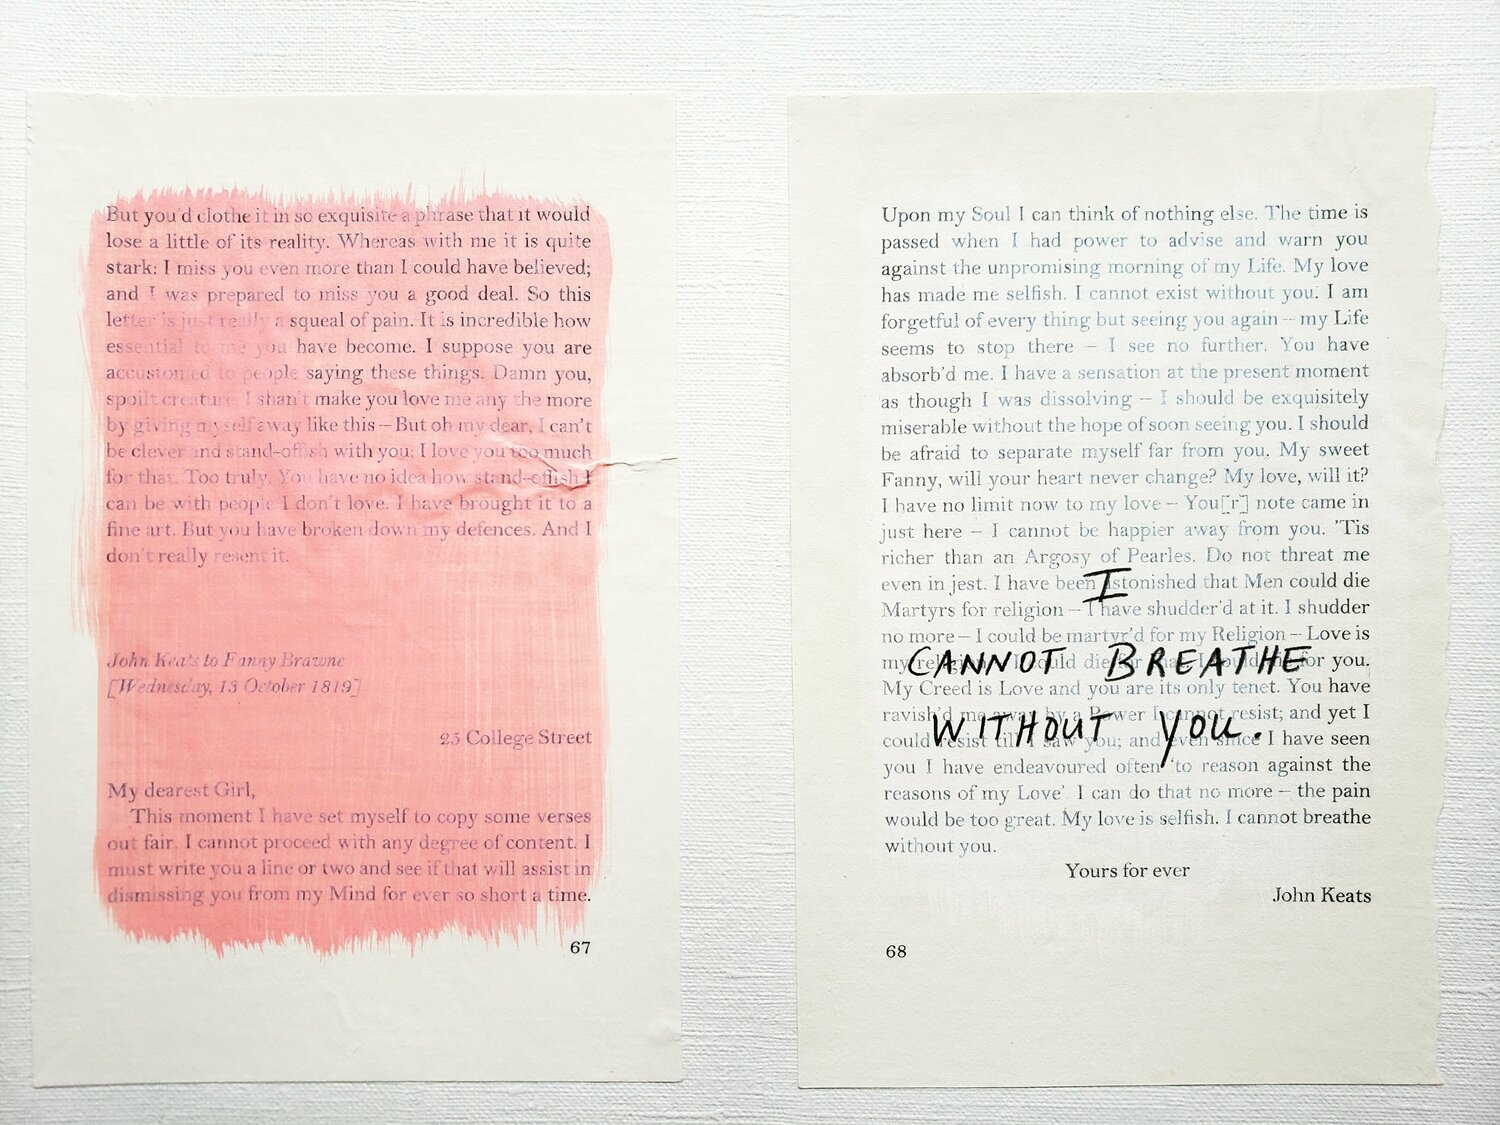 But you'd clothe it in so exquisite a phrase that it would
lose a little of its reality. Whereas with me it is quite
stark: I miss you even more than I could have believed;
and I was prepared to miss you a good deal. So this
letter is just really a squeal of pain. It is incredible how
essential to me you have become. I suppose you are
accustomed to people saying these things. Damn you,
spoilt creature; I shan't make you love me any the more
by giving myself away like this – But oh my dear, I can't
be clever and stand-offish with you: I love you too much
for that. Too truly. You have no idea how stand-offish I
can be with people I don't love. I have brought it to a
fine art. But you have broken down my defences. And I
don't really resent it.
John Keats to Fanny Brawne
[Wednesday, 13 October 1819]
25 College Street
My dearest Girl,
This moment I have set myself to copy some verses
out fair. I cannot proceed with any degree of content. I
must write you a line or two and see if that will assist in
dismissing you from my Mind for ever so short a time.
67
Upon my Soul I can think of nothing else. The time is
passed when I had power to advise and warn you
against the unpromising morning of my Life. My love
has made me selfish. I cannot exist without you. I am
forgetful of every thing but seeing you again – my Life
seems to stop there – I see no further. You have
absorb'd me. I have a sensation at the present moment
as though I was dissolving – I should be exquisitely
miserable without the hope of soon seeing you. I should
be afraid to separate myself far from you. My sweet
Fanny, will your heart never change? My love, will it?
I have no limit now to my love – You[r] note came in
just here – I cannot be happier away from you. 'Tis
richer than an Argosy of Pearles. Do not threat me
even in jest. I have been astonished that Men could die
Martyrs for religion – I have shudder'd at it. I shudder
no more – I could be martyr'd for my Religion – Love is
my religion – I could die for that. I could die for you.
My Creed is Love and you are its only tenet. You have
ravish'd me away by a Power I cannot resist; and yet I
could resist till I saw you; and even since I have seen
you I have endeavoured often 'to reason against the
reasons of my Love'. I can do that no more – the pain
would be too great. My love is selfish. I cannot breathe
without you.
Yours for ever
John Keats
68
I
CANNOT BREATHE
WITHOUT YOU.